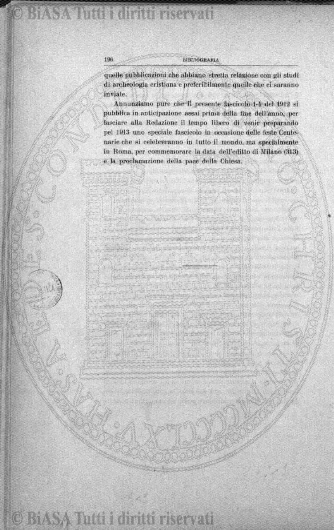 © BiASA Tutti i diritti riservati
196 BIBLIOGRAFIA
quelle pubblicazioni che abbiano stretta relazione con gli studi
di archeologia cristiana e preferibilmente quelle che ci saranno
inviate.
Annunziamo pure che il presente fascicolo 1-4 del 1912 si
pubblica in anticipazione assai prima della fine dell'anno, per
lasciare alla Redazione il tempo libero di venir preparando
pel 1913 uno speciale fascicolo in occasione delle feste Cente-
narie che si celebreranno in tutto il mondo, ma specialmente
in Roma, per commemorare la data dell'editto di Milano (313)
e la proclamazione della pace della Chiesa.
© BiASA Tutti i diritti riservati